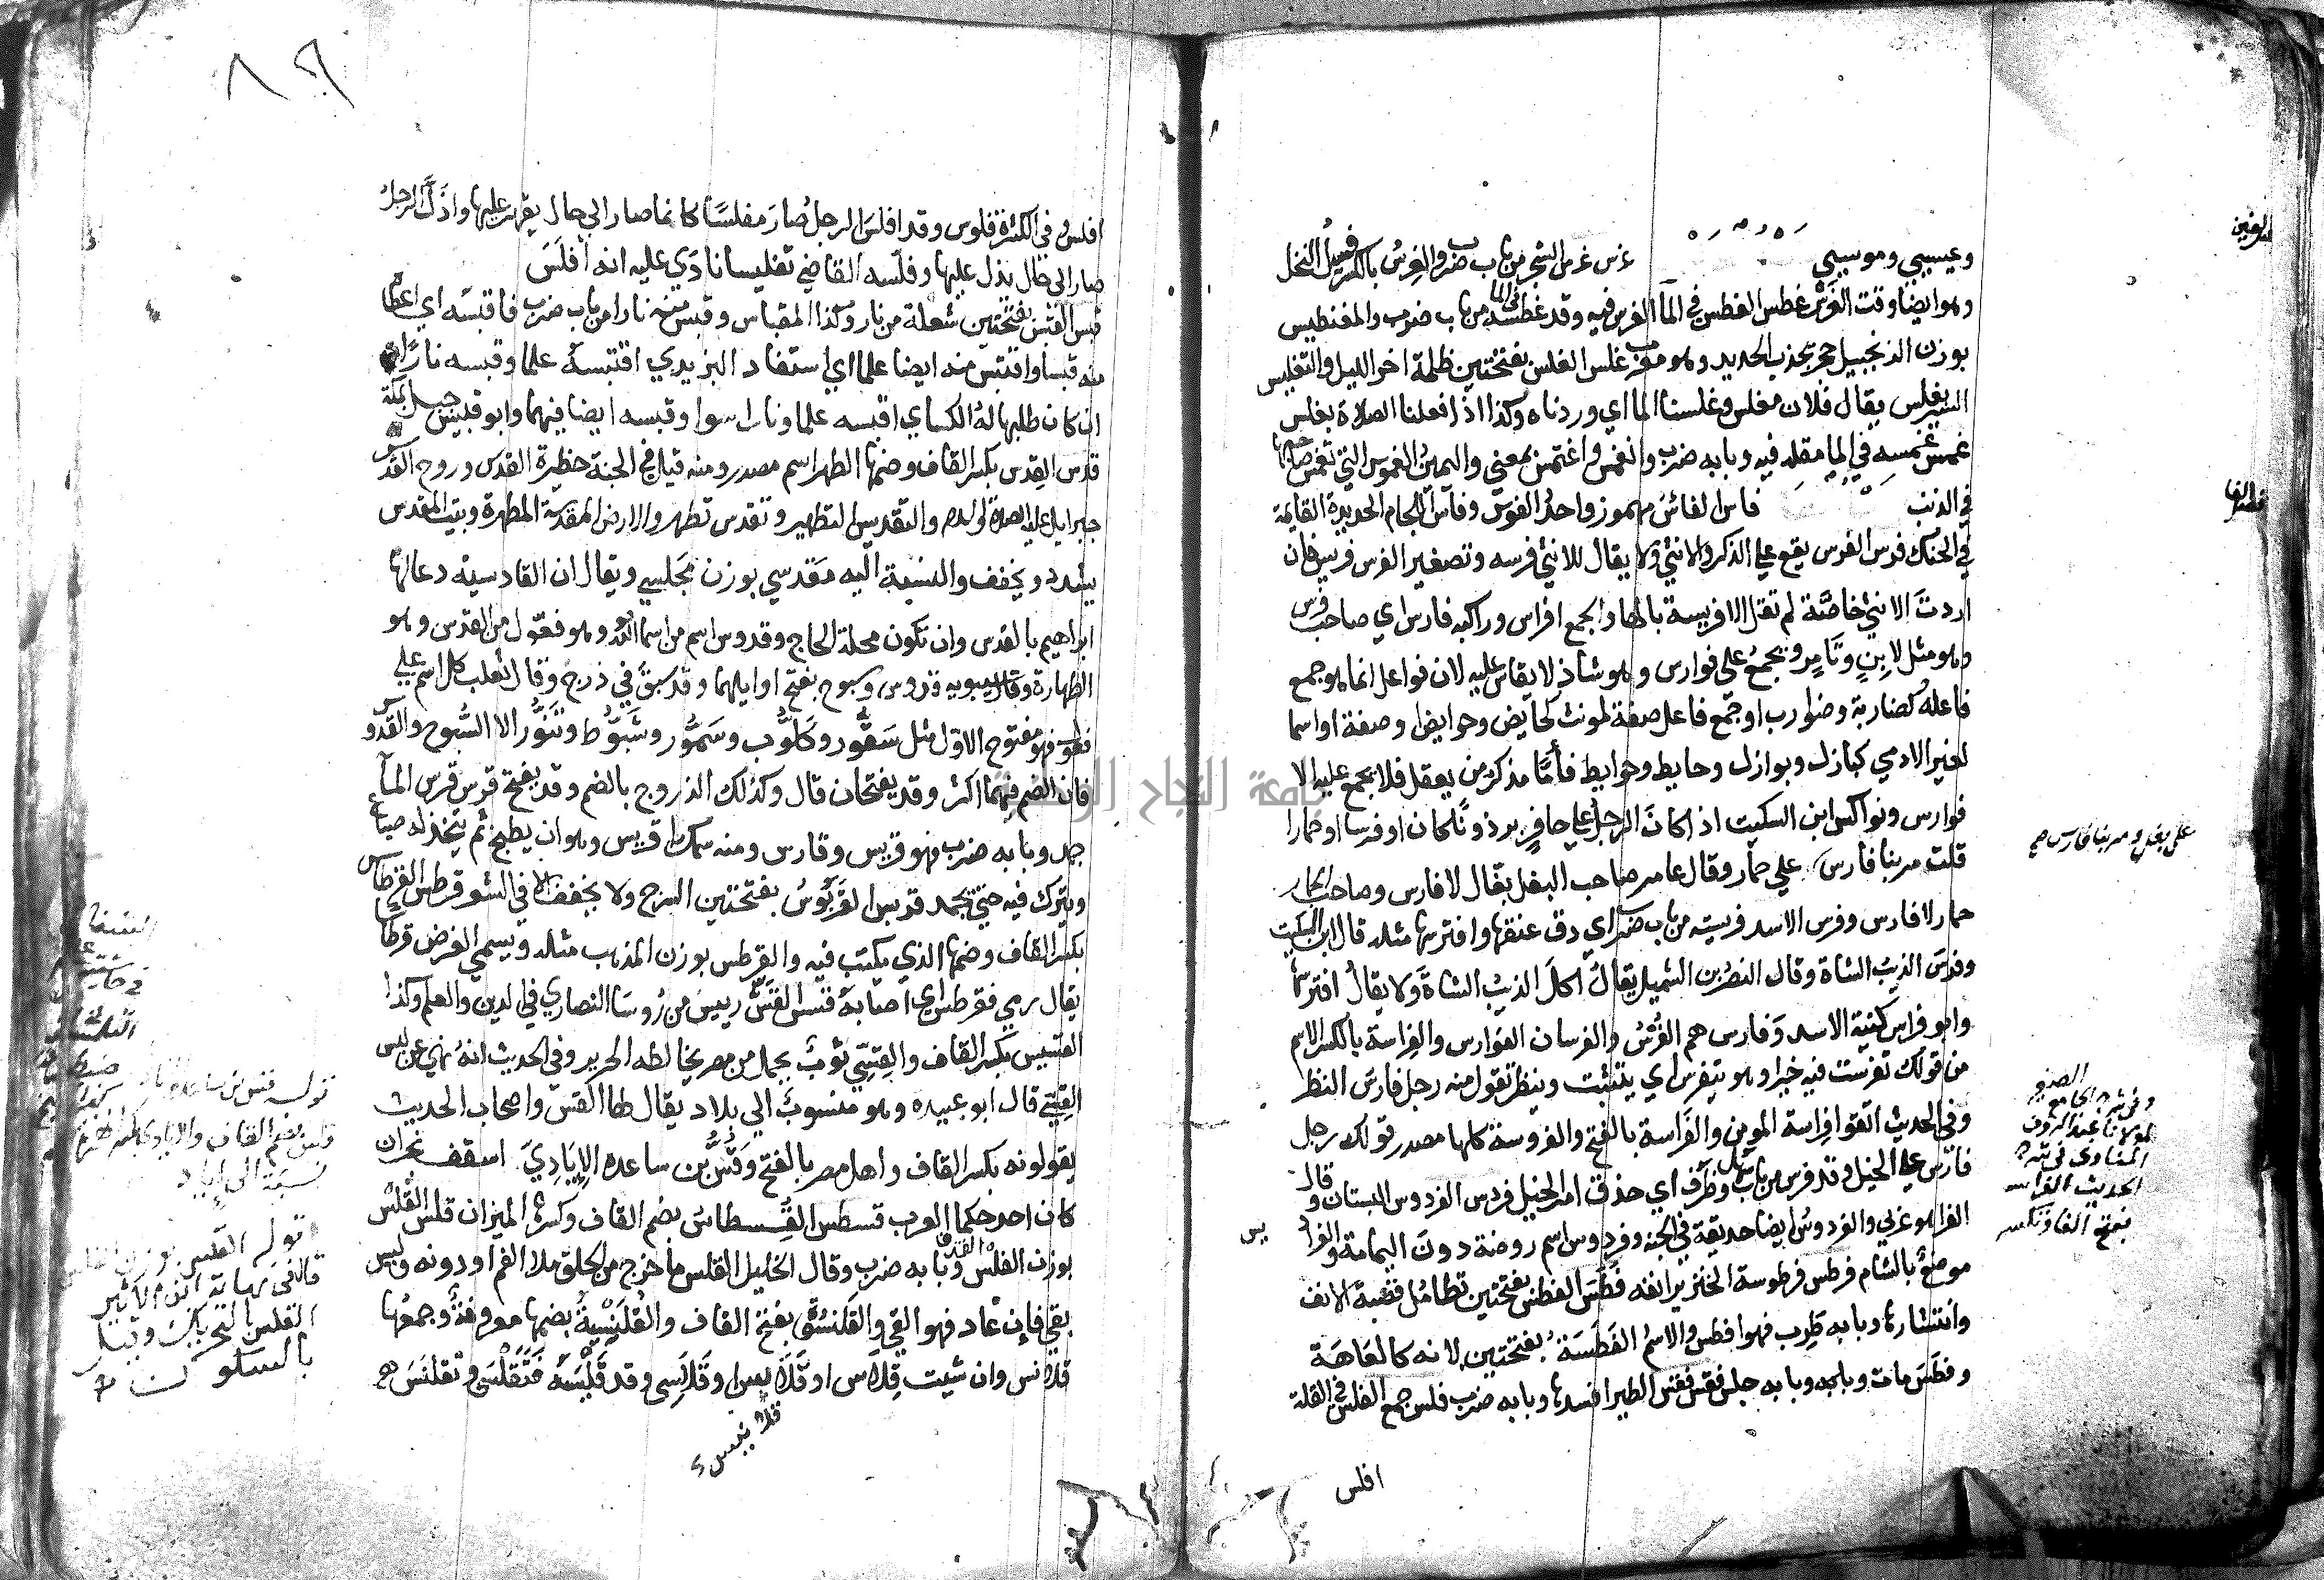 وعيسيي وموسيي غرس غرس الشجر من باب ضرب والغرس بالكسر فسيل النخل
وهو ايضا وقت الغرس غطس الغطس في الماء الغمس فيه وقد غطسه في الماء من باب ضرب والمغنطيس
بوزن الزنجبيل حجر يجذب الحديد وهو معرب غلس الغلس بفتحتين ظلمة اخر الليل والتغليس
السير بغلس يقال فلان مغلس وغلسنا الما اي وردناه وكذا اذا فعلنا الصلاة بغلس
غمس غمسه في الما مقله فيه وبابه ضرب وانغمس واغتمس بمعنى واليمين الغموس التي تغمس صاحبها
في الذنب فاس الفائس مهموز واحد الفوس وفأس اللجام الحديدة القايمة
في الحنك فرس الفرس يقع علي الذكر والانثي ولا يقال للانثي فرسه وتصغير الفرس فريس فان
اردت الانثي خاصة لم تقل الا فريسة بالها والجمع افراس وراكبه فارس اي صاحب فرس
وهو مثل لابن وتامر ويجمع علي فوارس وهو شاذ لا يقاس عليه لان فواعل انما هو جمع
فاعلة كضاربة وضوارب او جمع فاعل صفة لمونث كحايض وحوايض او صفة او اسما
لغير الادمي كبازل وبوازل وحايط وحوايط فأما مذكر من يعقل فلا يجمع عليه الا
فوارس ونواكس ابن السكيت اذا كان الرجل علي حافر برذونا كان او فرسا او حمارا
قلت مر بنا فارس علي حمار وقال عامر صاحب البغل بغال لا فارس وصاحب الحمار
حمار لا فارس وفرس الاسد فريسته من باب ضرب اي دق عنقها وافترسها مثله قال ابن السكيت
وفرس الذيب الشاة وقال النضر بن الشميل يقال اكل الذيب الشاة ولا يقال افترسها
وابو فراس كنية الاسد وفارس هم الفرس والفرسان الفوارس والفراسة بالكسر الاسم
من قولك تفرست فيه خيرا وهو يتفرس اي يتثبت وينظر تقول منه رجل فارس النظر
وفي الحديث اتقوا فراسة المومن والفراسة بالفتح والفروسة كلها مصدر قولك رجل
فارس علي الخيل وقد فرس من باب سهل وظرف اي حذق امر الخيل فردس الفردوس البستان وقال
الفرا هو عربي والفردوس ايضا حديقة في الجنه وفردوس اسم روضة دون اليمامة والفرا
موضع بالشام فرطس فرطوسة الخنزير انفه فطس الفطس بفتحتين تطامن قصبة الانف
وانتشارها وبابه طرب فهو افطس والاسم الفطسة بفتحتين لانه كالعاهة
وفطس مات وبابه وبابه جلس فقس فقس الطير افسدها وبابه ضرب فلس جمع الفلس في القلة
افلس
علي بغل ومر بنا فارس صح
وفي شرح الجامع الصغير
لمولانا عبد الروف
المناوي في شرح
الحديث الفراسه
بفتح الفا وتكسر
افلس وفي الكثرة فلوس وقد افلس الرجل صار مفلسا كانما صار الي حال يقهر عليها واذل الرجل
صار الي حال يذل عليها وفلسه القاضي تفليسا نادي عليه انه افلس
قبس القبس بفتحتين شعلة من نار وكذا المقباس وقبس منه نارا من باب ضرب فاقبسه اي اعطاه
منه قبسا واقتبس منه ايضا علما اي استفاد اليزيدي اقتبسه علما وقبسه نارا
ان كان طلبها له الكساي اقبسه علما ونارا سوا وقبسه ايضا فيهما وابو قبيس جبل بمكة
قدس القدس بكسر القاف وضمها الطهر اسم مصدر ومنه قيل في الجنة حظيرة القدس وروح القدس
جبرايل عليه الصلاة والسلام والتقديس التطهير وتقدس تطهر والارض المقدسة المطهرة وبيت المقدس
يشدد ويخفف والنسبة اليه مقدسي بوزن مجلسي ويقال ان القادسية دعا لها
ابراهيم بالقدس وان تكون محلة الحاج وقدوس اسم من اسما الله وهو فعول من القدس وهو
الطهارة وقال سيبويه قدوس وسبوح بفتح اوايلهما وقد سبق في ذرح وقال ثعلب كل اسم علي
فعول فهو مفتوح الاول مثل سفود وكلوب وسمور وشبوط وتنور الا السبوح والقدوس
فان الضم فيهما اكثر وقد يفتحان قال وكذلك الذروح بالضم وقد يفتح قرس قرس الماء
جمد وبابه ضرب فهو قريس وقارس ومنه سمك قريس وهو ان يطبخ ثم يتخذ له صباغ
ويترك فيه حتي يجمد قربس القربوس بفتحتين السرج ولا يخفف الا في الشعر قرطس القرطاس
بكسر القاف وضمها الذي يكتب فيه والقرطس بوزن المذهب مثله ويسمي الغرض قرطاسا
يقال رمي فقرطس اي اصابه قسس القس رييس من روسا النصاري في الدين والعلم وكذا
القسيس بكسر القاف والقسي ثوب يحمل من مصر يخالطه الحرير وفي الحديث انه نهي عن لبس
القسي قال ابو عبيده وهو منسوب الي بلاد يقال لها القس واصحاب الحديث
يقولونه بكسر القاف واهل مصر بالفتح وقس بن ساعده الايادي اسقف نجران
كان احد حكما العرب قسطس القسطاس بضم القاف وكسرها الميزان قلس القلس
بوزن الفلس القذف وبابه ضرب وقال الخليل القلس ما خرج من الحلق ملا الفم او دونه وليس
بقي فان عاد فهو القي والقلنسوة بفتح القاف والقلنسية بضمها معروفة وجمعها
قلانس وان شيت قلاس او قلانيس او قلاسي وقد قلسه فتقلسي وتقلنس صح
قلانيس
قوله قس بن ساعده
قس بضم القاف والايادي بكسر الهمزة
نسبة الي اياد
قوله القلس بوزن الفلس
قال في نهاية ابن الاثير
القلس بالتحريك وقيل
بالسكون
جامعة النجاح الوطنية